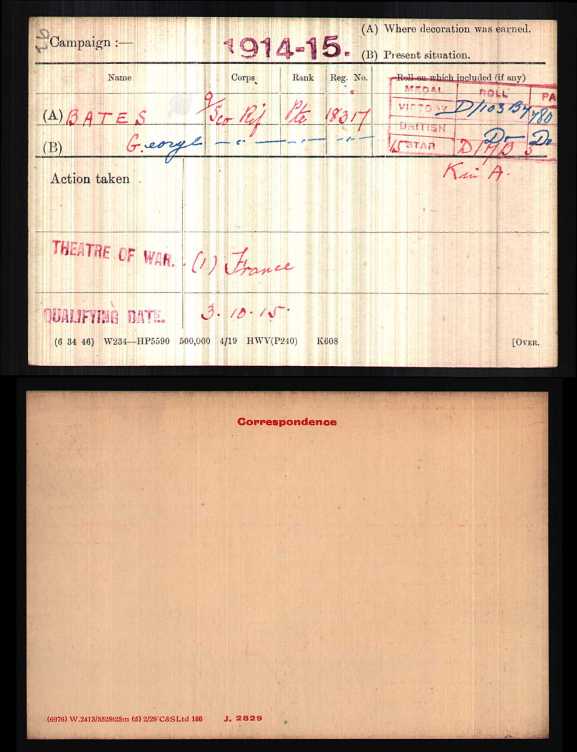 (A) Where decoration was earned.
Campaign :— 1914-15.
(B) Present situation.
Name Corps. Rank Reg. No. Roll on which included (if any)
MEDAL ROLL PA
(A) BATES 9/Sco Rif Pte 18317 VICTORY D/103 B7 780
(B) George — " — — " — — " — BRITISH Do Do
15 STAR D/17D 5
Action taken K in A.
THEATRE OF WAR. (1) France
QUALIFYING DATE. 3.10.15.
(6 34 46) W234—HP5590 500,000 4/19 HWV(P240) K608 [OVER.
Correspondence
(6976) W.2413/5529 25m (6) 2/29 C&SLtd 166 J. 2829